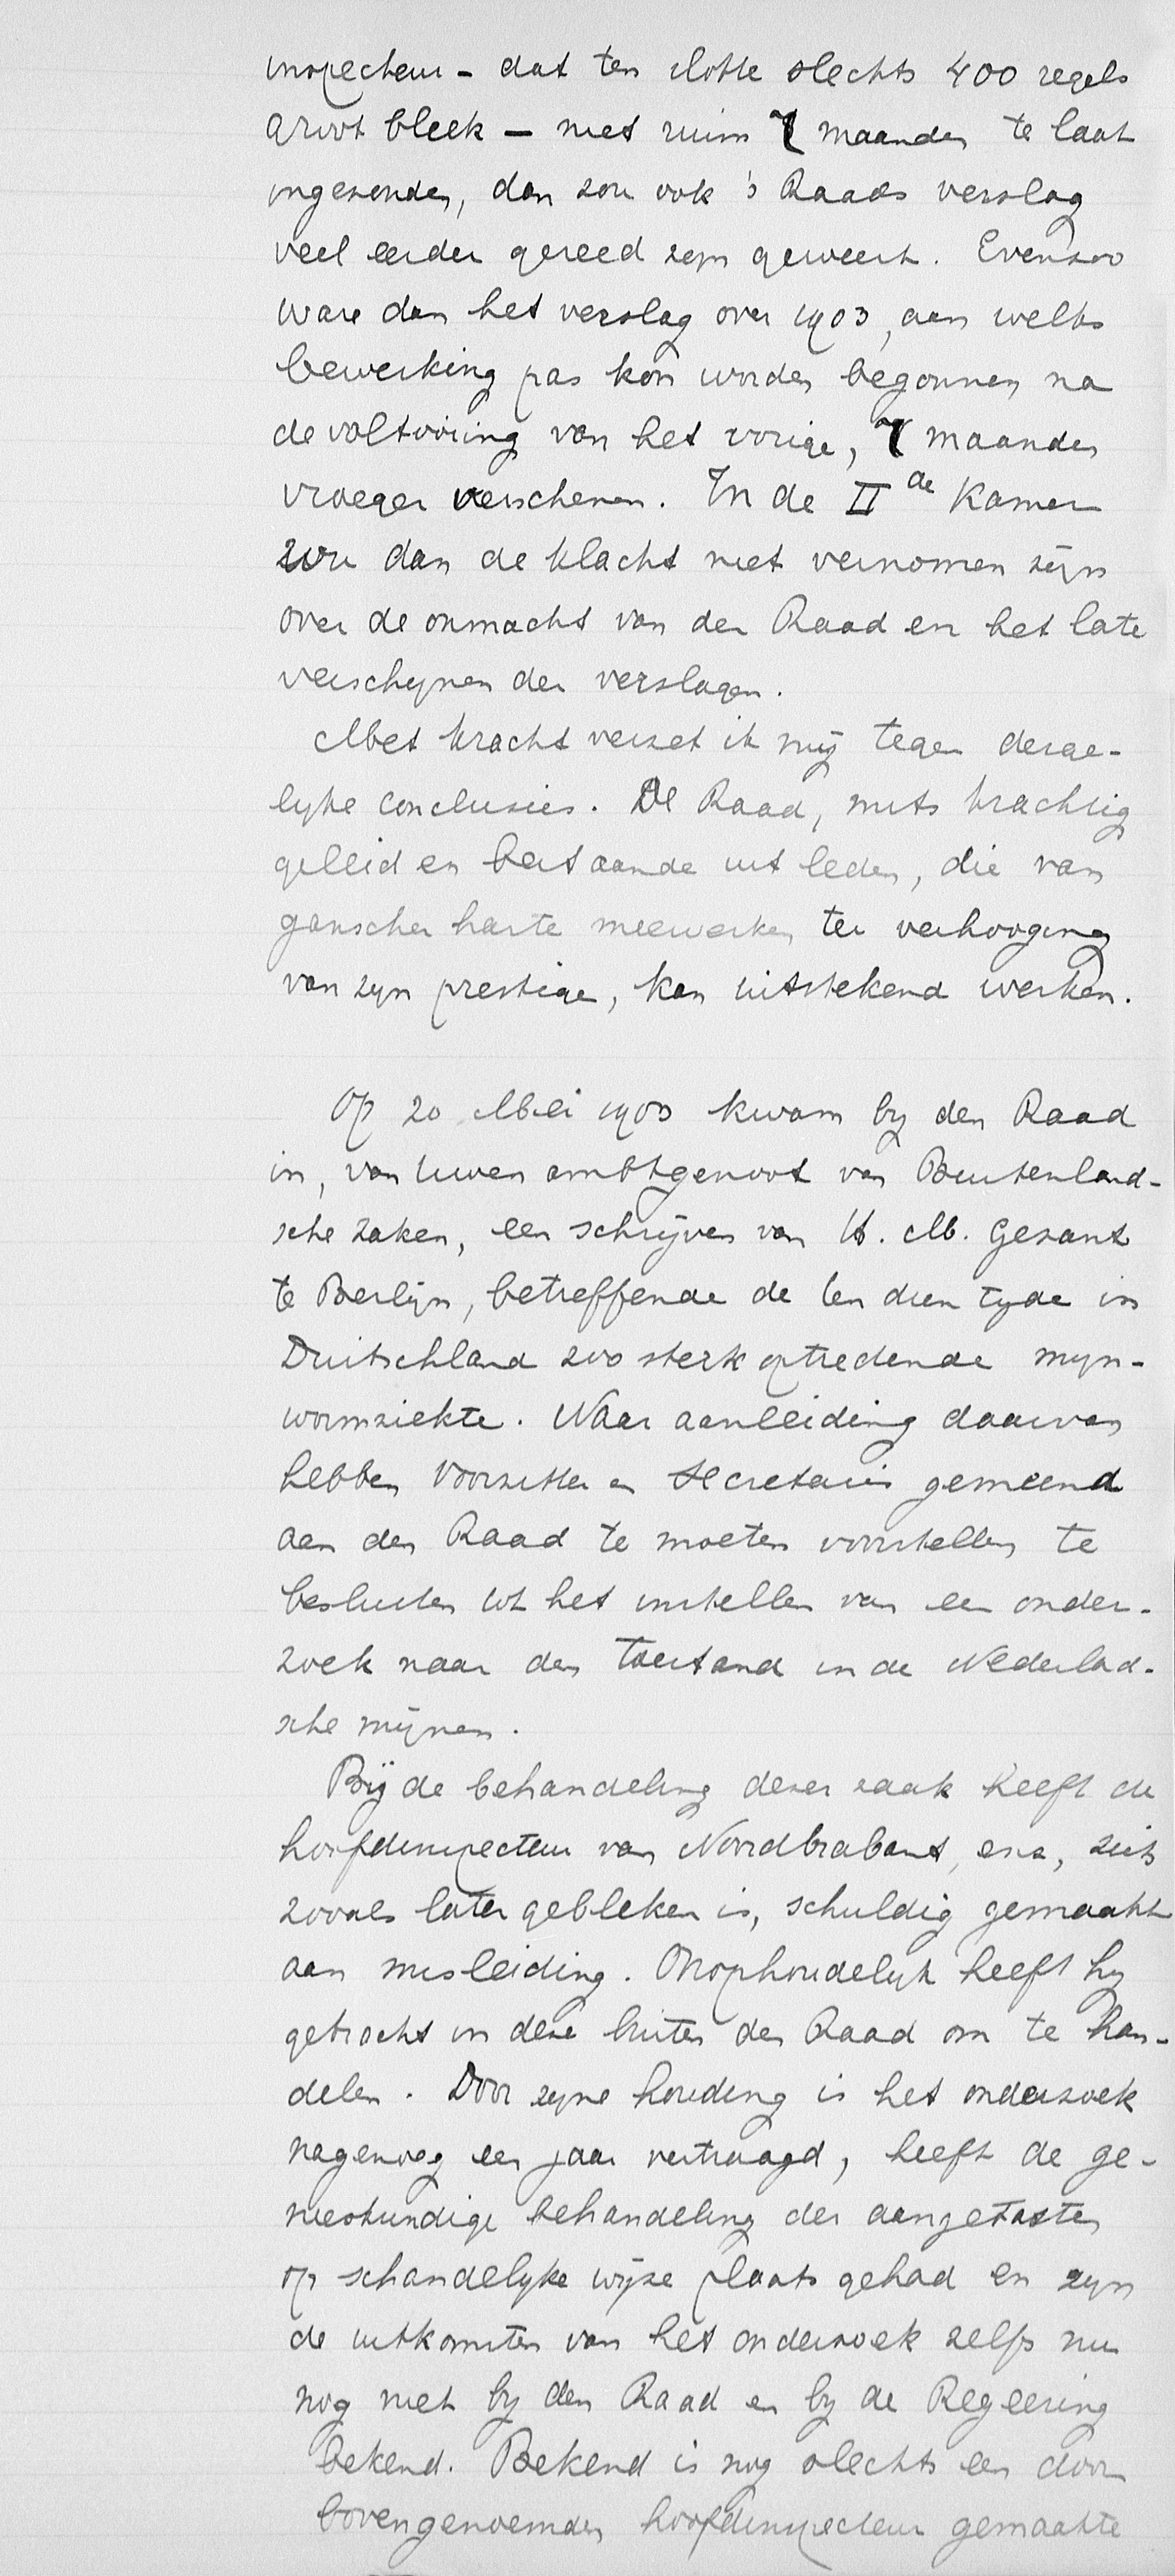 inspecteur - dat ten slotte slechts 400 regels
groot bleek - niet ruim 7 maanden te laat
ingezonden, dan zou ook 's Raads verslag
veel eerder gereed zijn geweest. Evenzoo
ware dan het verslag over 1903, aan welks
bewerking pas kon worden begonnen na
de voltooiing van het vorige, 7 maanden
vroeger verschenen. In de IIde Kamer
zou dan de klacht niet vernomen zijn
over de onmacht van den Raad en het late
verschijnen der verslagen.
Met kracht verzet ik mij tegen derge-
lijke conclusies. De Raad, mits krachtig
geleid en bestaande uit leden, die van
ganscher harte meewerken ter verhooging
van zijn prestige, kan uitstekend werken.
Op 20 Mei 1903 kwam bij den Raad
in, van Uwen ambtgenoot van Buitenland-
sche zaken, een schrijven van H. M. Gezant
te Berlijn, betreffende de ten dien tijde in
Duitschland zoo sterk optredende mijn-
wormziekte. Naar aanleiding daarvan
hebben Voorzitter en Secretaris gemeend
aan den Raad te moeten voorstellen te
besluiten tot het instellen van een onder-
zoek naar den toestand in de Nederland-
sche mijnen.
Bij de behandeling dezer zaak heeft de
hoofdinspecteur van Noordbrabant, enz, zich
zooals later gebleken is, schuldig gemaakt
aan misleiding. Onophoudelijk heeft hij
getracht in deze buiten den Raad om te han-
delen. Door zijne houding is het onderzoek
nagenoeg een jaar vertraagd, heeft de ge-
neeskundige behandeling der aangetasten
op schandelijke wijze plaats gehad en zijn
de uitkomsten van het onderzoek zelfs nu
nog niet bij den Raad en bij de Regeering
bekend. Bekend is nog slechts een door
bovengenoemden hoofdinspecteur gemaakte